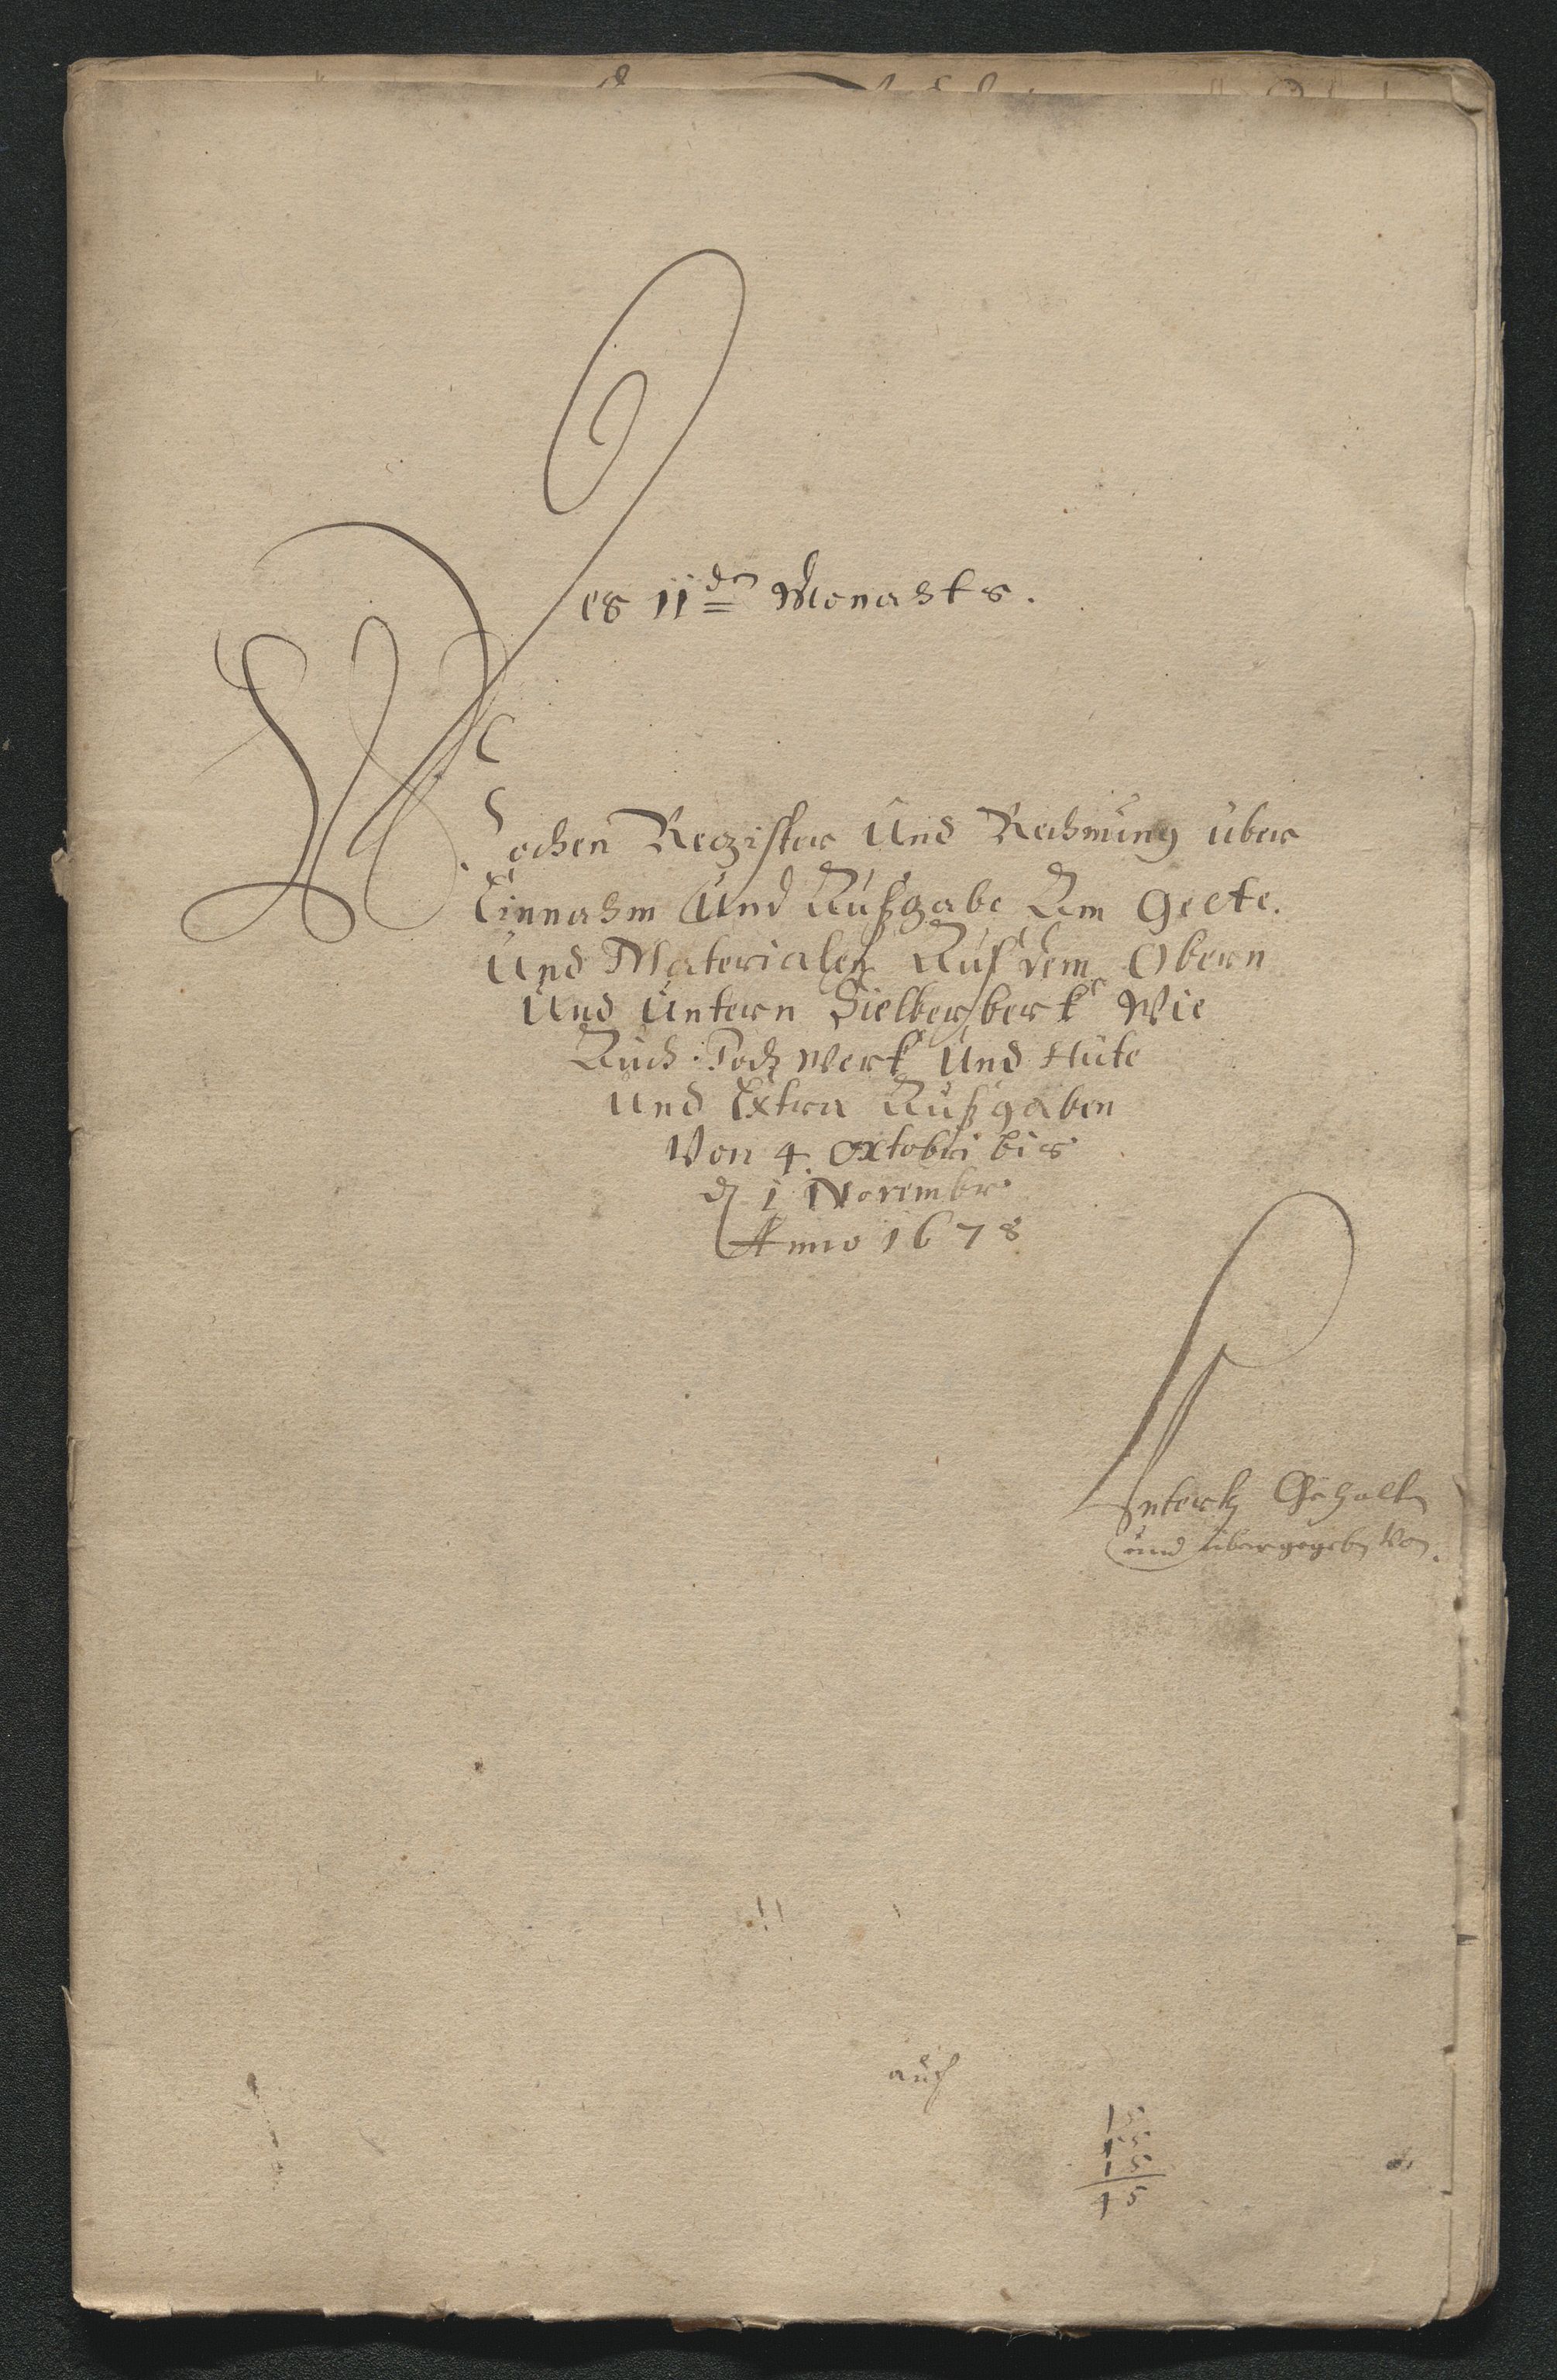 Des 11den Monahts.
Wochen Regzister Und Rechnung über
Einnahm Und Außgabe Am Geelte.
Und Materialen Auf dem Obern
Und Untern Sielberberk Wie
Auch Poch Werk Und Hüte
Und Extra Außgaben
Von 4. Oxtobri bis
d 1 Novembr
Anno 1678
Gehalten
und übergegeben Von
auch
15
15
15